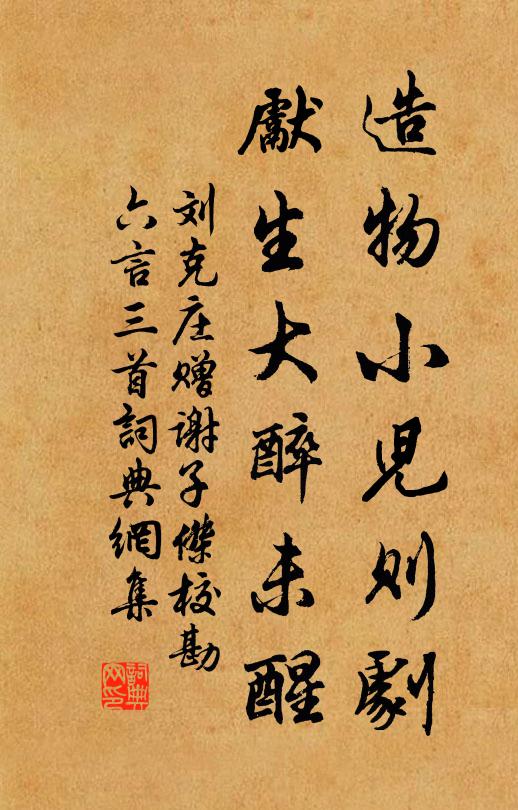 造物小児则劇
獻生大醉未醒
刘克庄赠谢子傑校勘
六言三首詞典網集
詞典网印